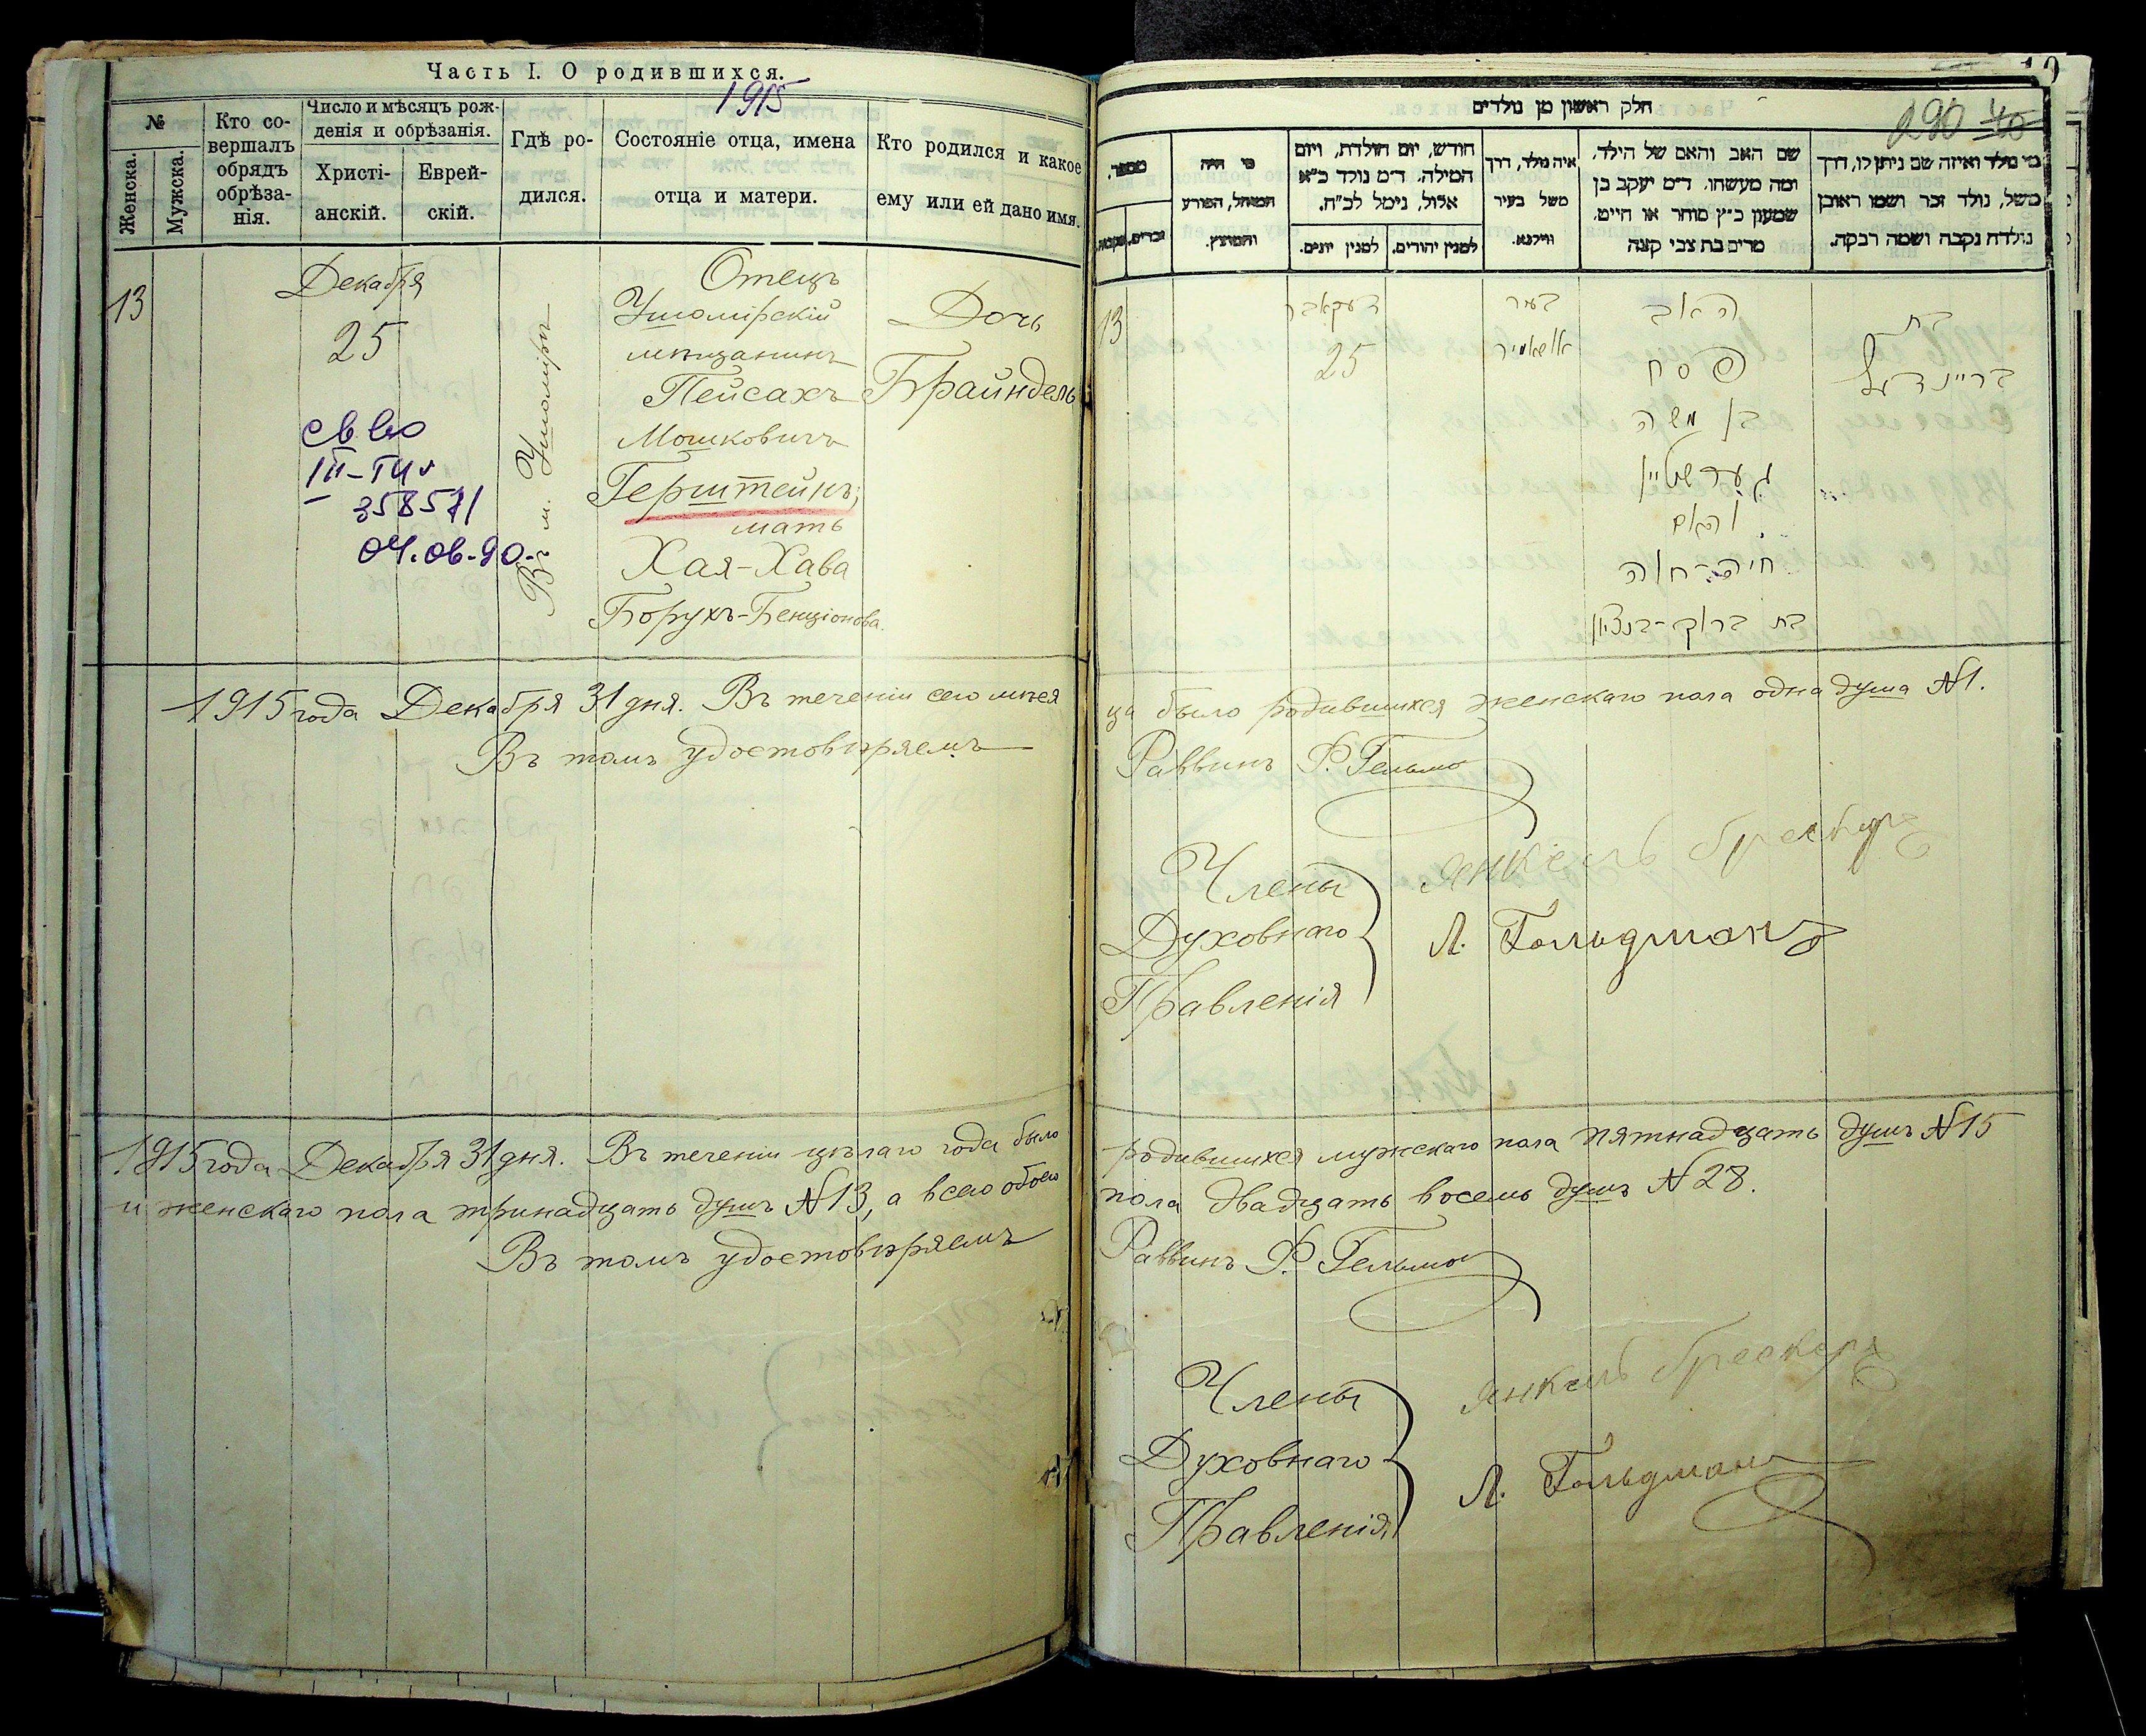 Часть I. О родившихся.
1915
№
Женска.
Мужска.
Кто со-
вершалъ
обрядъ
обрѣза-
нія.
Число и мѣсяцъ рож-
денія и обрѣзанія.
Христі-
анскій.
Еврей-
скій.
Гдѣ ро-
дился.
Состояніе отца, имена
отца и матери.
Кто родился и какое
ему или ей дано имя.
13
Декабря
25
Въ м. Ушомірѣ
Отецъ
Ушомірскій
мѣщанинъ
Пейсахъ
Мошковичъ
Герштейнъ;
мать
Хая-Хава
Борухъ-Бенціонова.
Дочь
Брайндель
358571
04.06-90.
1915 года Декабря 31 дня. Въ теченіи сего мѣся
Въ томъ удостовѣряемъ
1915 года Декабря 31 дня. Въ теченіи цѣлаго года было
и женскаго пола тринадцать душъ №13, а всего обоего
Въ томъ удостовѣряемъ
290 40
חלק ראשון מן נולדים
מספר,
זכרים, נקבות.
מי היה
המוהל, הפורע
והמוצץ.
חודש, יום הולדת, ויום
המילה. ד״מ נולד כ״א
אלול, נימל לכ״ח.
למנין יהודים.
למנין יונים.
איה נולד, דרך
משל בעיר
ווילנא.
שם האב והאם של הילד,
ומה מעשהו. ד״מ יעקב בן
שמעון כ״ץ סוחר או חייט.
מרים בת צבי קצה
מי נולד ואיזה שם ניתן לו, דרך
משל, נולד זכר ושמו ראובן
נולדה נקבה ושמה רבקה.
13
דעקאבר
25
בעיר
אושאמיר
האב
פסח
בן משה
גערשטיין
והאם
חיה-חוה
בת ברוך-בנציון
בת
בריינדעל
ца было родившихся женскаго пола одна душа №1.
Раввинъ Ф. Гельман
Члены
Духовнаго
Правленія
Янкель Брескеръ
Л. Гольдманъ
родившихся мужскаго пола пятнадцать душъ №15
пола двадцать восемь душъ №28.
Раввинъ Ф. Гельман
Члены
Духовнаго
Правленія
Янкель Брескеръ
Л. Гольдманъ